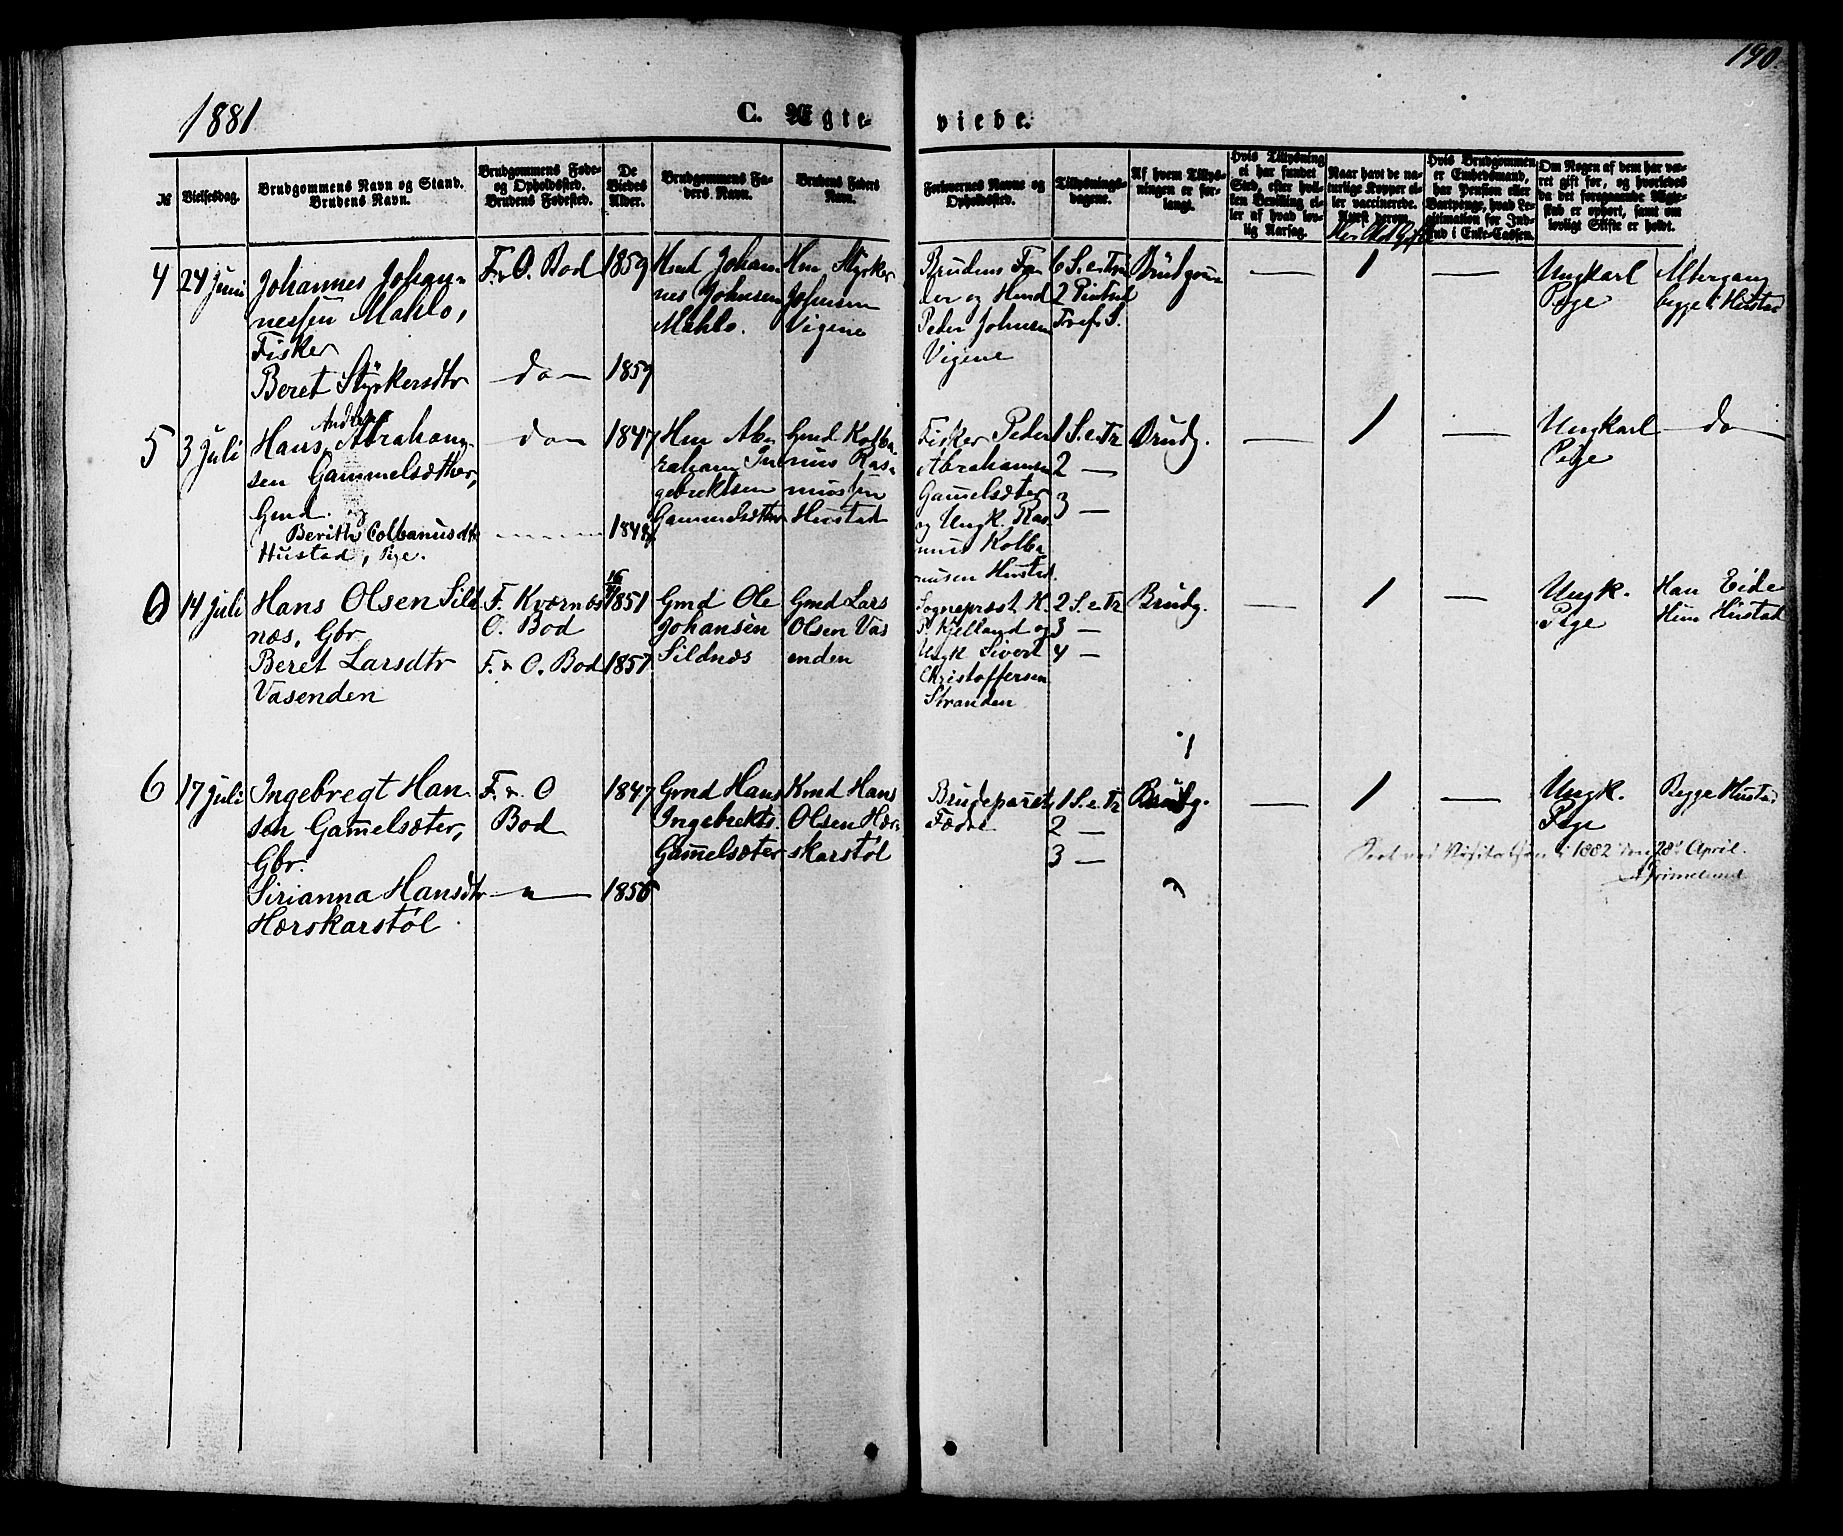 190.
1881
C. Ægte- viede.
№
Vielsesdag.
Brudgommens Navn og Stand.
Brudens Navn.
Brudgommens Føde-
og Opholdssted.
Brudens Fødested.
De
Viedes
Alder.
Brudgommens Fa-
ders Navn.
Brudens Faders
Navn.
Forlovernes Navne og
Opholdssted.
Tillysnings-
dagene.
Af hvem Tillys-
ningen er for-
langt.
Hvis Tillysning
ei har fundet
Sted, efter hvil-
ken Bevilling el-
ler af hvad lov-
lig Aarsag.
Naar havt de na-
turlige Kopper el-
ler vaccinerede.
Attest derom.
Hvis Brudgommen
er Embedsmand,
har Pension eller
Vartpenge, hvad Le-
gitimation for Ind-
skud i Enke-Cassen.
Om Nogen af dem har væ-
ret gift for, og hvorledes
da det foregaaende Ægte-
skab er ophørt, samt om
lovlige Skifte er holdt.
4
24 Juni
Johannes Johan-
nessen Mahlo,
Fisker
Beret Styrkersdtr
F. & O. Bod
do
1859
1859
Hmd Johan-
nes Johnsen
Mahlo.
Hm Styrker
Johnsen
Vigene
Brudens Fa-
der og Hmd
Peter Johnsen
Vigene
6 S. e. Tr
2 Pintsd
Tref. S.
Brudgom
—
1
—
Ungkarl
Pige
Altergang
begge i Hustad
5
3 Juli
Andreas
Hans Abraham-
sen Gammelsæther,
Gmd.
Berith Colbanusdtr
Hustad, Pige.
do
1847
1848
Hm Ab-
raham In-
gebrektsen
Gammelsæther
Gmd Kolba-
nus Ras-
mussen
Hustad
Fisker Peder
Abrahamsen
Gamelsæter
og Ungk. Ras-
mus Kolba-
nusen Hustad.
1 S. e. Tr
2 —
3 —
Brudg.
—
1
—
Ungkarl
Pige
do
14 Juli
Hans Olsen Sild-
næs, Gbr.
Beret Larsdtr
Vasenden
F. Kværnes
O. Bod
F. & O. Bod
1851
1857
Gmd Ole
Johansen
Sildnæs
Gmd Lars
Olsen Vas-
enden
Sogneprest H.
P. Kjelland og
Ungk Sivert
Christoffersen
Stranden
2 S. e. Tr
3 —
4 —
Brudg.
—
1
—
Ungk.
Pige
Han Eide
Hun Hustad
6
17 Juli
Ingebregt Han-
sen Gamelsæter,
Gbr.
Sirianna Hansdtr
Hærskarstøl
F. & O
Bod
— " —
1847
1856
Gmd Hans
Ingebrekts.
Gamelsæter
Kmd Hans
Olsen Hær-
skarstøl
Brudeparets
Fædre
1 S. e. Tr
2 —
3 —
Brudg.
—
1
—
Ungk.
Pige
Begge Hustad
Seet ved Visitatsen i 1882 den 28de April.
Grimelund